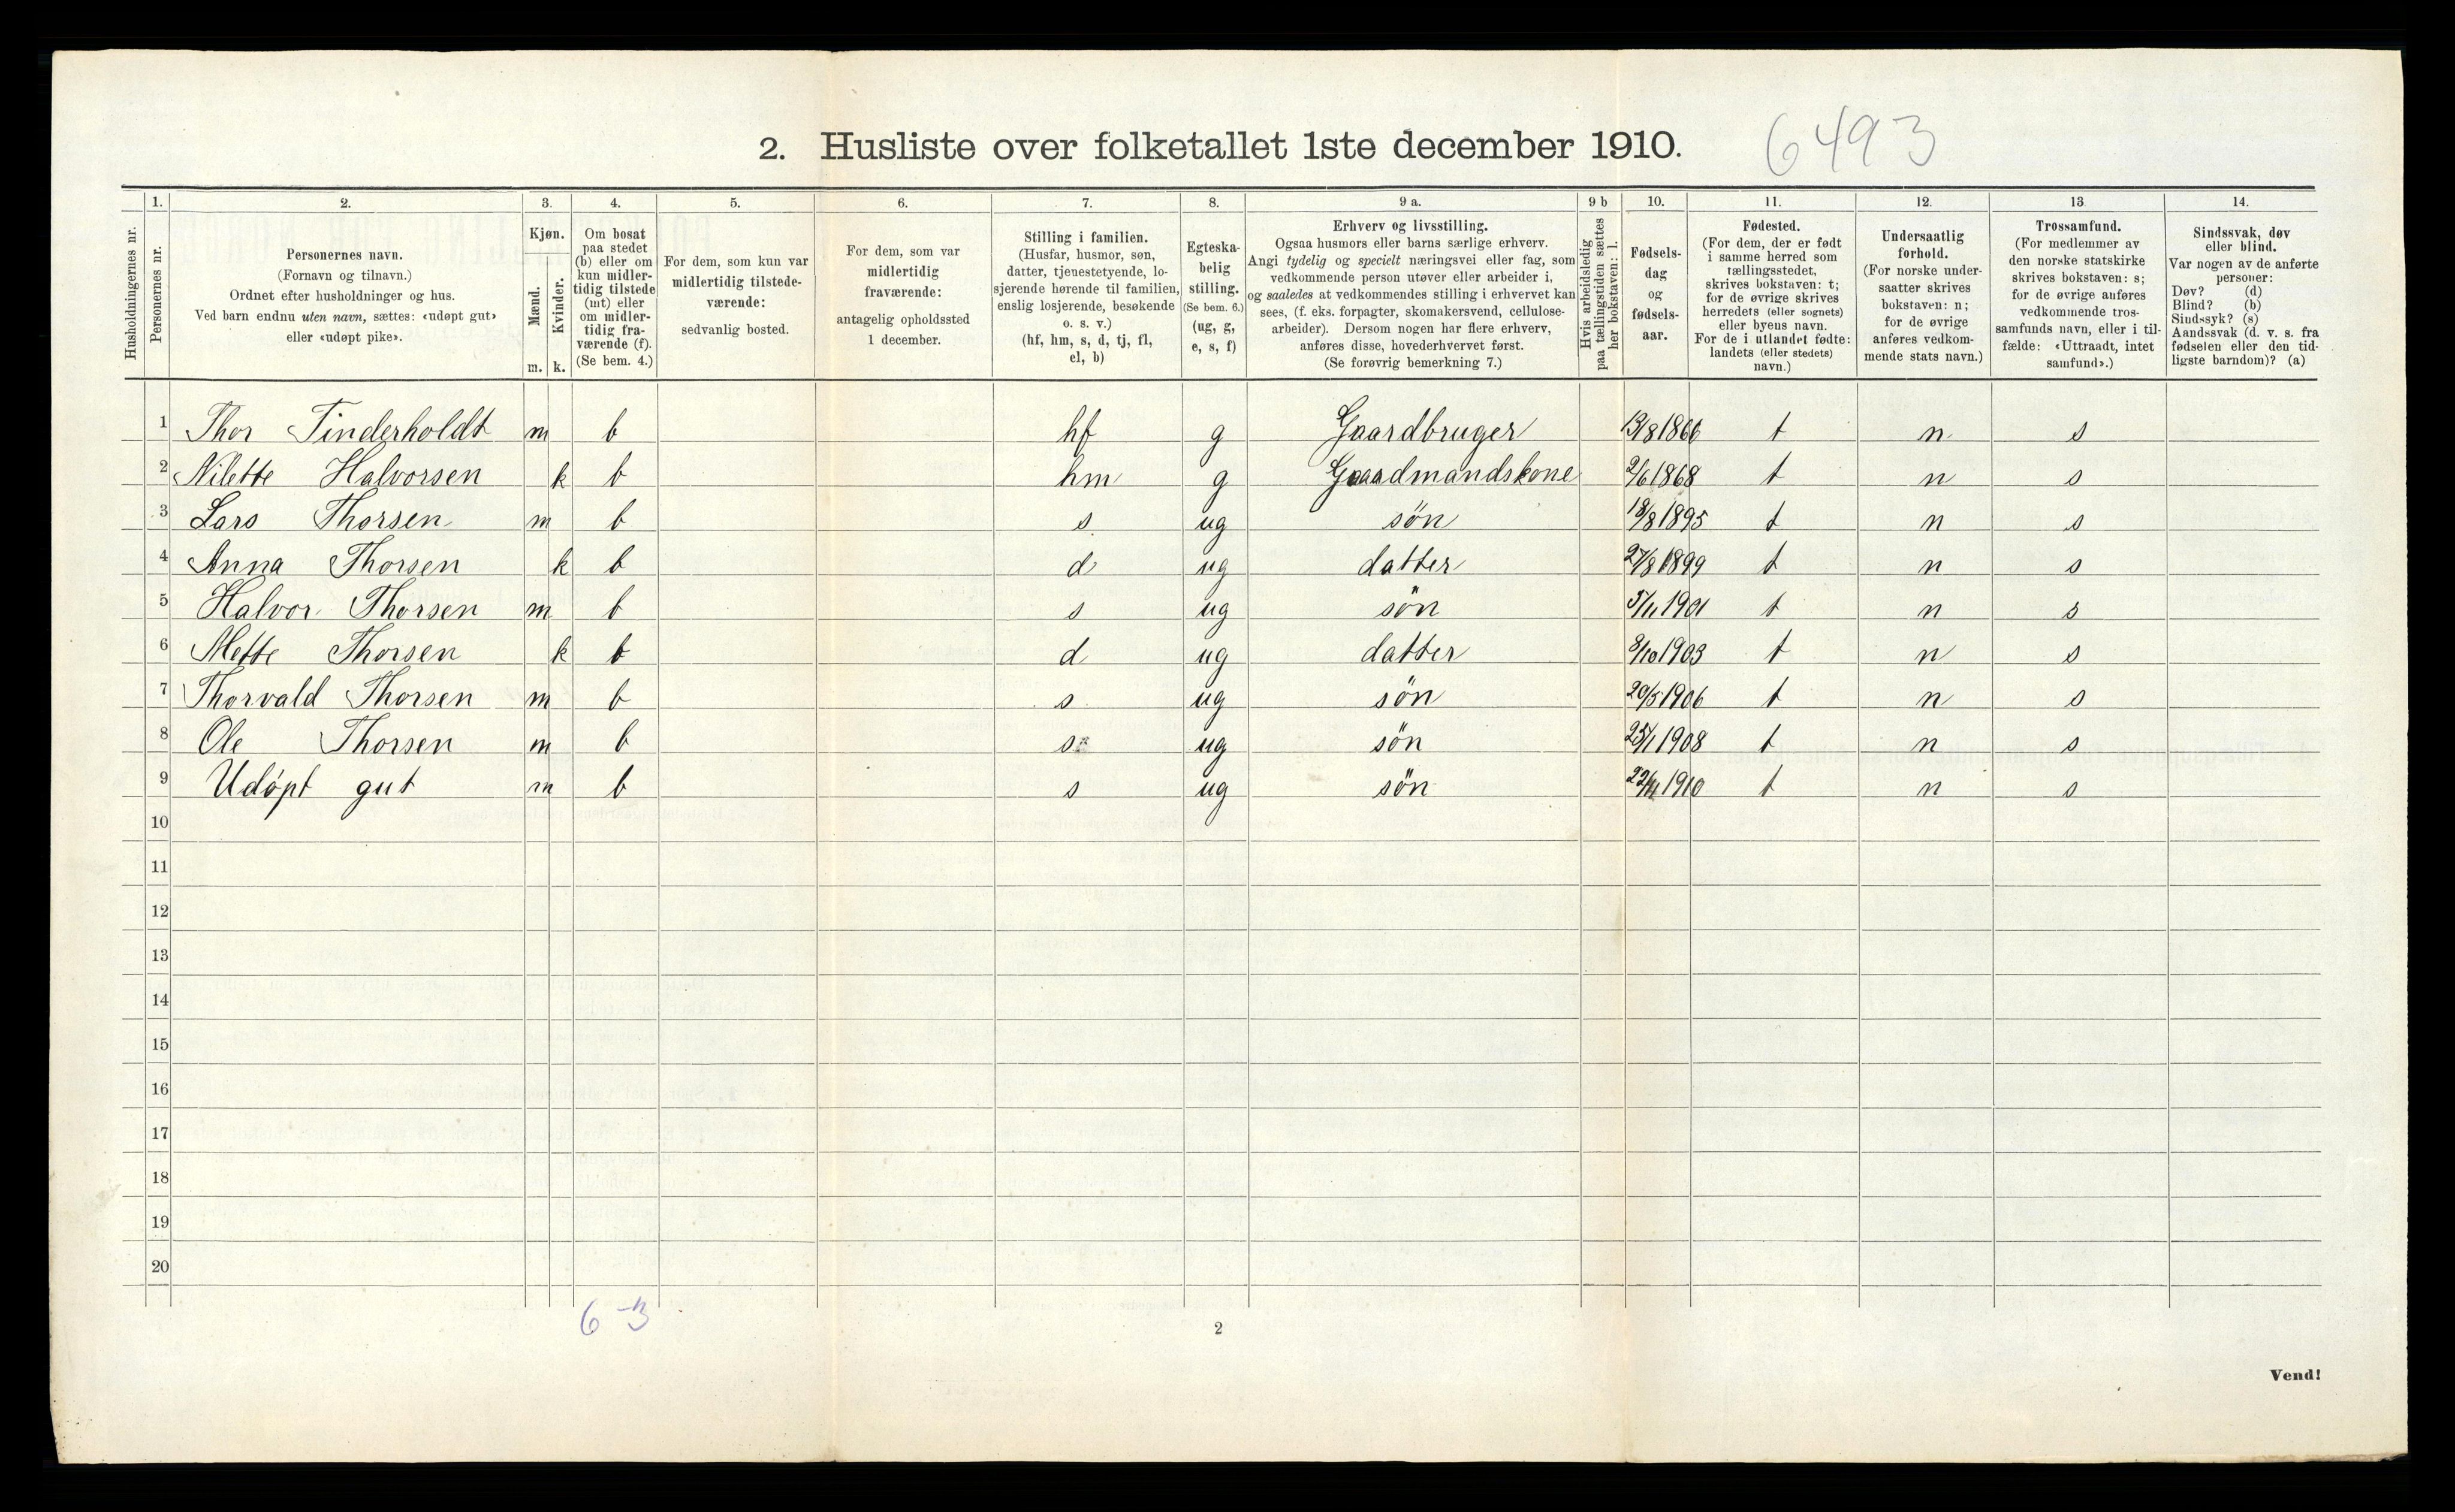 2. Husliste over folketallet 1ste december 1910.
6493
Husholdningernes nr.
1. Personernes nr.
2. Personernes navn. (Fornavn og tilnavn.) Ordnet efter husholdninger og hus. Ved barn endnu uten navn, sættes: «udøpt gut» eller «udøpt pike».
3. Kjøn. Mænd. m. Kvinder. k.
4. Om bosat paa stedet (b) eller om kun midlertidig tilstede (mt) eller om midlertidig fraværende (f). (Se bem. 4.)
5. For dem, som kun var midlertidig tilstedeværende: sedvanlig bosted.
6. For dem, som var midlertidig fraværende: antagelig opholdssted 1 december.
7. Stilling i familien. (Husfar, husmor, søn, datter, tjenestetyende, losjerende hørende til familien, enslig losjerende, besøkende o. s. v.) (hf, hm, s, d, tj, fl, el, b)
8. Egteskabelig stilling. (Se bem. 6.) (ug, g, e, s, f)
9 a. Erhverv og livsstilling. Ogsaa husmors eller barns særlige erhverv. Angi tydelig og specielt næringsvei eller fag, som vedkommende person utøver eller arbeider i, og saaledes at vedkommendes stilling i erhvervet kan sees, (f. eks. forpagter, skomakersvend, cellulosearbeider). Dersom nogen har flere erhverv, anføres disse, hovederhvervet først. (Se forøvrig bemerkning 7.)
9 b Hvis arbeidsledig paa tællingstiden sættes her bokstaven: l.
10. Fødselsdag og fødselsaar.
11. Fødested. (For dem, der er født i samme herred som tællingsstedet, skrives bokstaven: t; for de øvrige skrives herredets (eller sognets) eller byens navn. For de i utlandet fødte: landets (eller stedets) navn.)
12. Undersaatlig forhold. (For norske undersaatter skrives bokstaven: n; for de øvrige anføres vedkommende stats navn.)
13 Trossamfund. (For medlemmer av den norske statskirke skrives bokstaven: s; for de øvrige anføres vedkommende trossamfunds navn, eller i tilfælde: «Uttraadt, intet samfund».)
14. Sindssvak, døv eller blind. Var nogen av de anførte personer: Døv? (d) Blind? (b) Sindssyk? (s) Aandssvak (d. v. s. fra fødselen eller den tidligste barndom)? (a)
1 Thor Tinderholdt m b hf g Gaardbruger 13/8 1866 t n s
2 Nilette Halvorsen k b hm g Gaardmandskone 2/6 1868 t n s
3 Lars Thorsen m b s ug søn 18/8 1895 t n s
4 Anna Thorsen k b d ug datter 27/8 1899 t n s
5 Halvor Thorsen m b s ug søn 5/11 1901 t n s
6 Mette Thorsen k b d ug datter 8/10 1903 t n s
7 Thorvald Thorsen m b s ug søn 20/5 1906 t n s
8 Ole Thorsen m b s ug søn 25/1 1908 t n s
9 Udøpt gut m b s ug søn 22/11 1910 t n s
10
11
12
13
14
15
16
17
18
19
20
6-3
2
Vend!